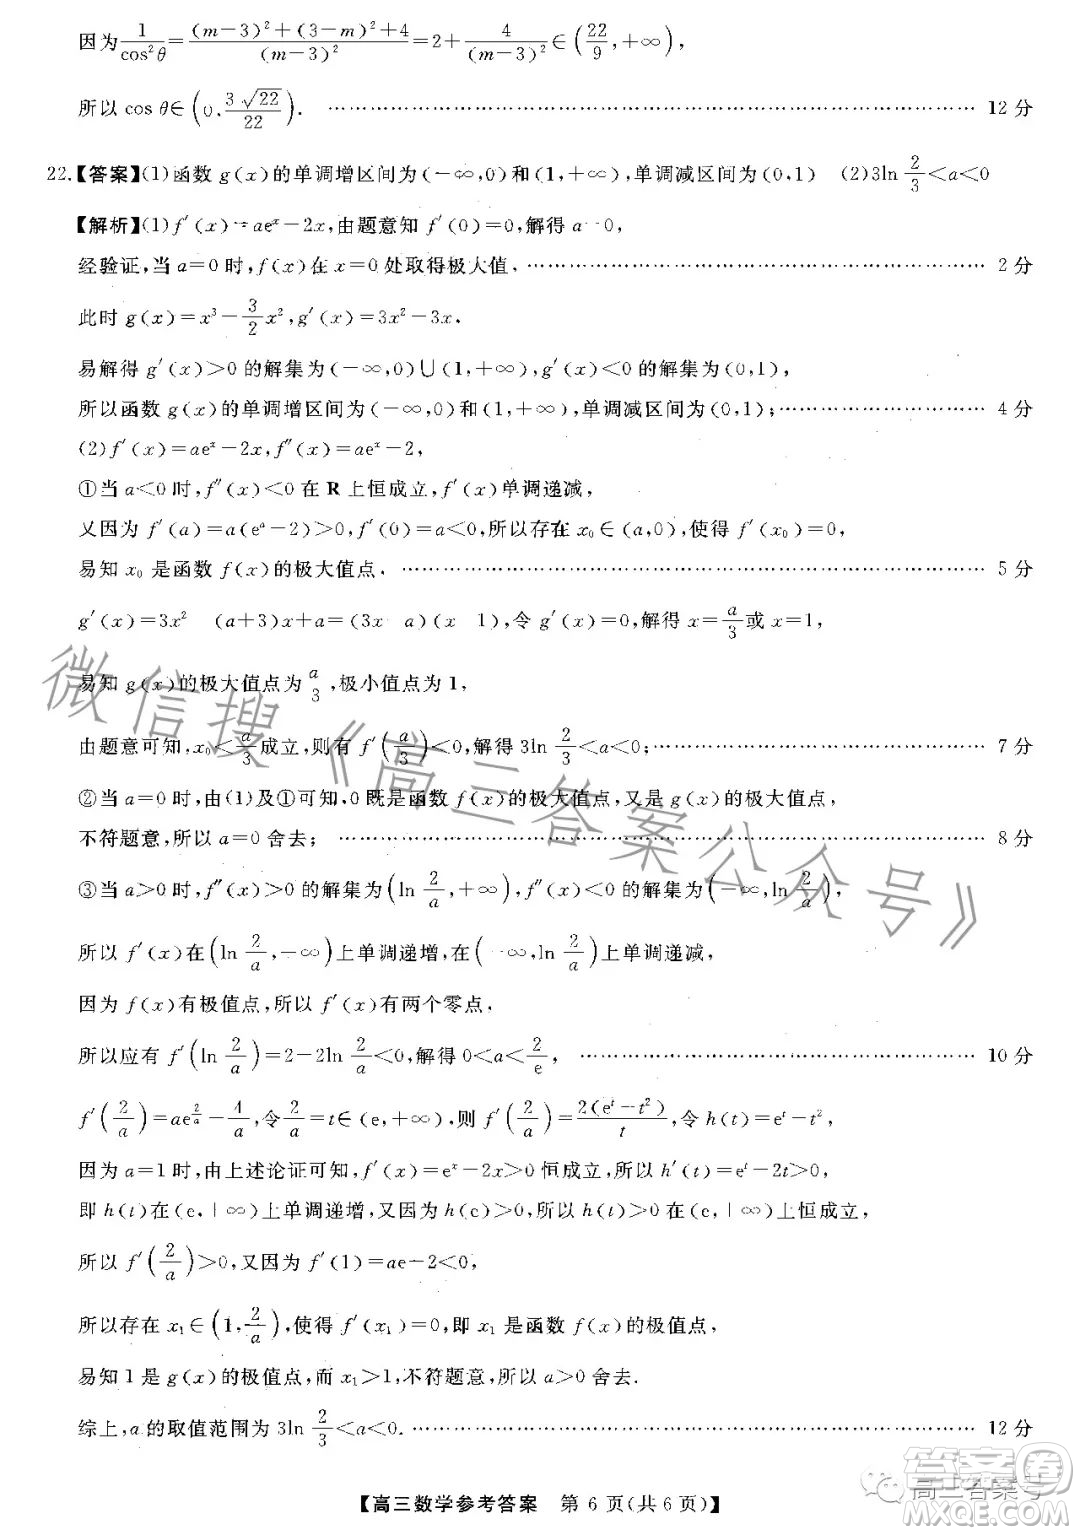 因为1/cos²θ=((m-3)²+(3-m)²+4)/(m-3)²=2+4/(m-3)²∈(22/9,+∞),
所以cos θ∈(0,3√22/22). ………… 12分
22.【答案】(1)函数g(x)的单调增区间为(-∞,0)和(1,+∞),单调减区间为(0,1) (2)3ln 2/3<a<0
【解析】(1)f′(x)=aeˣ-2x,由题意知f′(0)=0,解得a=0,
经验证,当a=0时,f(x)在x=0处取得极大值. ………… 2分
此时g(x)=x³-3/2x²,g′(x)=3x²-3x.
易解得g′(x)>0的解集为(-∞,0)∪(1,+∞),g′(x)<0的解集为(0,1),
所以函数g(x)的单调增区间为(-∞,0)和(1,+∞),单调减区间为(0,1);………… 4分
(2)f′(x)=aeˣ-2x,f″(x)=aeˣ-2,
①当a<0时,f″(x)<0在R上恒成立,f′(x)单调递减,
又因为f′(a)=a(eᵃ-2)>0,f′(0)=a<0,所以存在x₀∈(a,0),使得f′(x₀)=0,
易知x₀是函数f(x)的极大值点. ………… 5分
g′(x)=3x² (a+3)x+a=(3x a)(x 1),令g′(x)=0,解得x=a/3或x=1,
易知g(x)的极大值点为a/3,极小值点为1,
由题意可知,x₀<a/3成立,则有f′(a/3)<0,解得3ln 2/3<a<0;………… 7分
②当a=0时,由(1)及①可知,0既是函数f(x)的极大值点,又是g(x)的极大值点,
不符题意,所以a=0舍去; ………… 8分
③当a>0时,f″(x)>0的解集为(ln 2/a,+∞),f″(x)<0的解集为(-∞,ln 2/a),
所以f′(x)在(ln 2/a,-∞)上单调递增,在(-∞,ln 2/a)上单调递减,
因为f(x)有极值点,所以f′(x)有两个零点,
所以应有f′(ln 2/a)=2-2ln 2/a<0,解得0<a<2/e, ………… 10分
f′(2/a)=ae^(2/a)-4/a,令2/a=t∈(e,+∞),则f′(2/a)=2(eᵗ-t²)/t,令h(t)=eᵗ-t²,
因为a=1时,由上述论证可知,f′(x)=eˣ-2x>0恒成立,所以h′(t)=eᵗ-2t>0,
即h(t)在(e,+∞)上单调递增,又因为h(e)>0,所以h(t)>0在(e,+∞)上恒成立,
所以f′(2/a)>0,又因为f′(1)=ae-2<0,
所以存在x₁∈(1,2/a),使得f′(x₁)=0,即x₁是函数f(x)的极值点,
易知1是g(x)的极值点,而x₁>1,不符题意,所以a>0舍去.
综上,a的取值范围为3ln 2/3<a<0. ………… 12分
【高三数学参考答案 第6页(共6页)】
微信搜《高三答案公众号》
高三答案号
答案圈
MXQE.COM